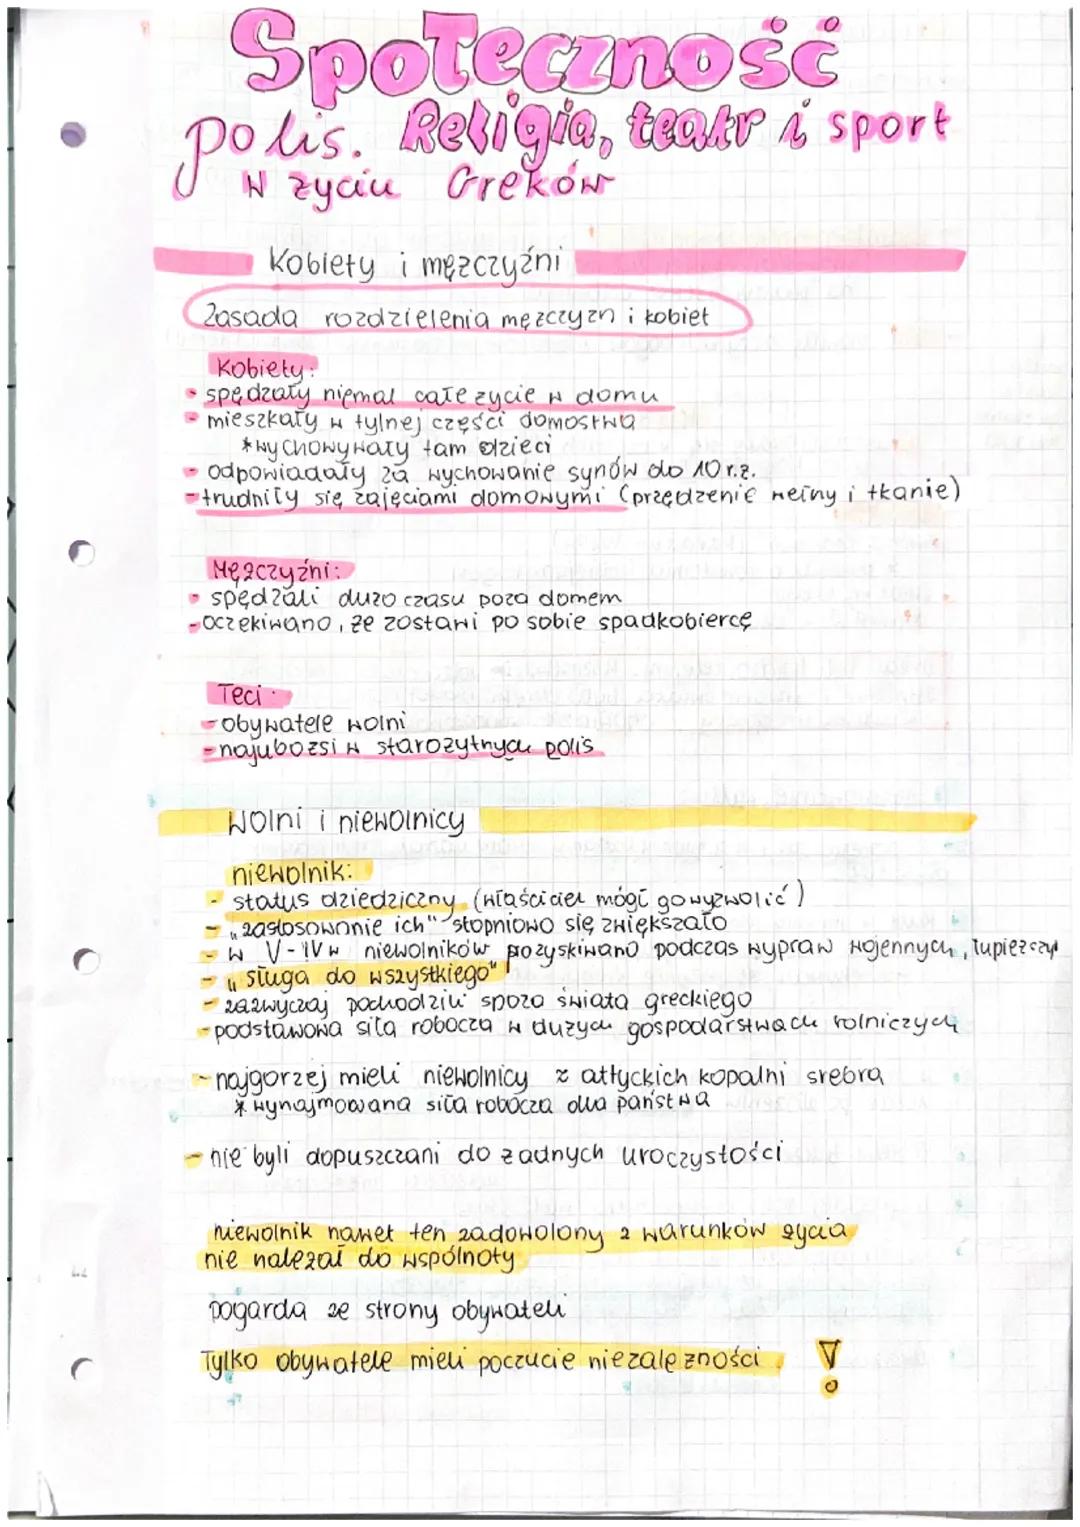 Społeczność
polis. Religia, teatr i sport
w życiu Greków
Kobiety i mężczyźni
Zasada rozdzielenia mężczyzn i kobiet
Kobiety:
- spędzały niemal całe życie w domu
- mieszkały w tylnej części domostwa
* wychowywały tam dzieci
- odpowiadały za wychowanie synów do 10 r.ż.
- trudniły się zajęciami domowymi (przędzenie wełny i tkanie)
Mężczyźni:
- spędzali dużo czasu poza domem
- oczekiwano, że zostawi po sobie spadkobiercę
Teci
- obywatele wolni
- najubożsi w starożytnych polis
Wolni i niewolnicy
niewolnik:
- status dziedziczny (właściciel mógł go wyzwolić)
- "zastosowanie ich" stopniowo się zwiększało
- w V-IVw niewolników pozyskiwano podczas wypraw wojennych, łupieżczyc
- "sługa do wszystkiego"
- zazwyczaj pochodzili spoza świata greckiego
- podstawowa siła robocza w dużych gospodarstwach rolniczych
- najgorzej mieli niewolnicy z attyckich kopalni srebra
* wynajmowana siła robocza dla państwa
- nie byli dopuszczani do żadnych uroczystości
niewolnik nawet ten zadowolony z warunków życia
nie należał do wspólnoty
pogarda ze strony obywateli
Tylko obywatele mieli poczucie niezależności !